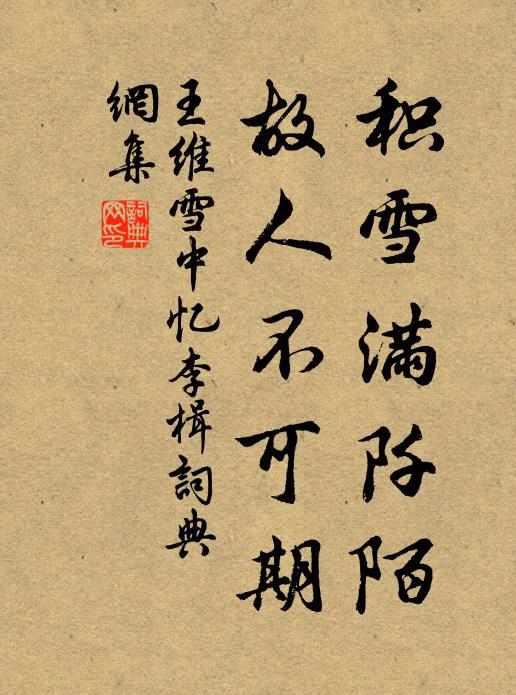 积雪满阡陌
故人不可期
王维雪中忆李楫詞典
網集
詞典
网印